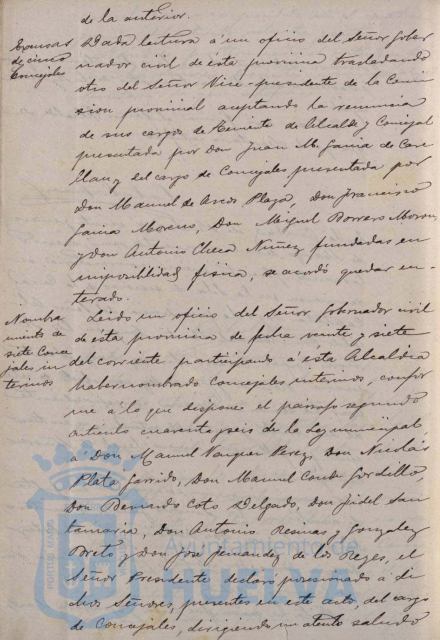 de la anterior.
Excusas
de cinco
Concejales
Dada lectura á un oficio del Señor Gober
nador civil de ésta provincia trasladando
otro del Señor Vice-presidente de la Comi
sion provincial aceptando la renuncia
de sus cargos de Teniente de Alcalde y Concejal
presentada por Don Juan M. Garcia de
y del cargo de Concejales presentada por
Don Manuel de Arcos Plaza, Don Francisco
Garcia Moreno, Don Miguel Borrero Moron
y Don Antonio Checa Nuñez fundadas en
imposibilidad fisica, se acordó quedar en-
terado.
Nombra
miento de
siete Conce
jales in
terinos
Leido un oficio del Señor Gobernador civil
de ésta provincia de fecha veinte y siete
del corriente participando á ésta Alcaldia
haber nombrado Concejales interinos, confor
me á lo que dispone el párrafo segundo
articulo cuarenta y seis de la Ley municipal,
á Don Manuel Vazquez Perez, Don Nicolás
Plata Garrido, Don Manuel Conde Gordillo
Don Bernardo Coto Delgado, Don Fidel San
tamaria, Don Antonio Resinas y Gonzalez
Prieto y Don José Fernandez de los Reyes, el
Señor Presidente declaró posesionado á di
chos Señores, presentes en este acto, del cargo
de Concejales, dirigiendo un atento saludo
Ayuntamiento de
HUELVA